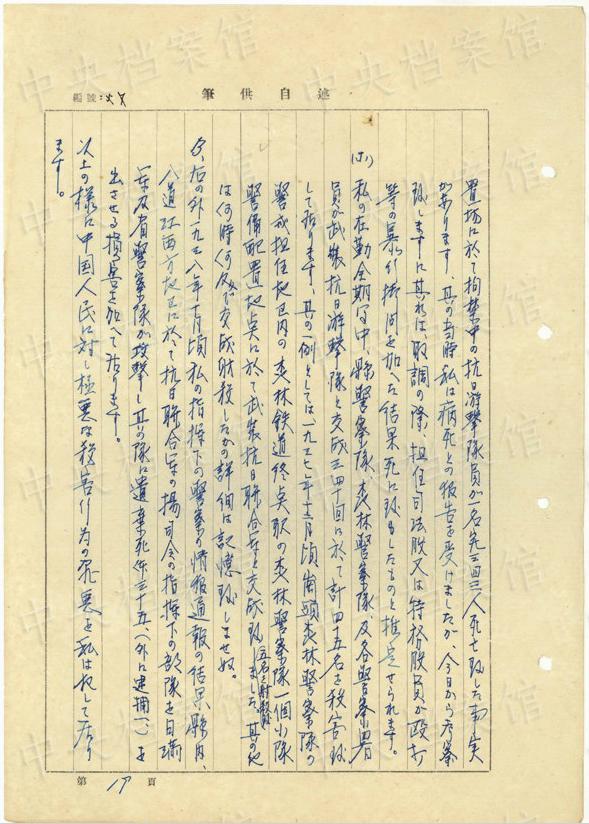 述自供筆
編號：
置場に於て拘禁中の抗日游撃隊員が一名宛三四人死亡致した事実
があります、其の当時私は病死との報告を受けましたが、今日から考察
致しますに其れは、取調の際、担任司法股又は特務股員が殴打
等の暴行拷問を加へた結果死に致らしたものと推定せられます。
私の在勤全期間中、縣警察隊、森林警察隊、及各警察署
員が武装抗日游撃隊と交戦三四十回に於て計四十五名を殺害致
して居ります、其の一例としては一九三七年十二月頃 森林警察隊の
警戒担任地区内の森林鉄道終点駅の森林警察隊一個小隊
警備配置地点に於て武装抗日聯合軍と交戦致しました、其の他
は何時何処で交戦射殺したかの詳細は記憶致しませぬ。
右の外一九三八年十月頃私の指揮下の警察の情報通報の結果縣内、
八道江西方地区に於て抗日聯合軍の楊司令の指揮下の部隊を日満
軍及省警察隊が攻撃し其の隊に遺棄死体三十五（外に逮捕一）を
出させる損害を加へて居ります。
以上の様に中国人民に対し極悪な殺害行為の罪悪を私は犯して居り
ます。
第 17 頁
中央档案馆